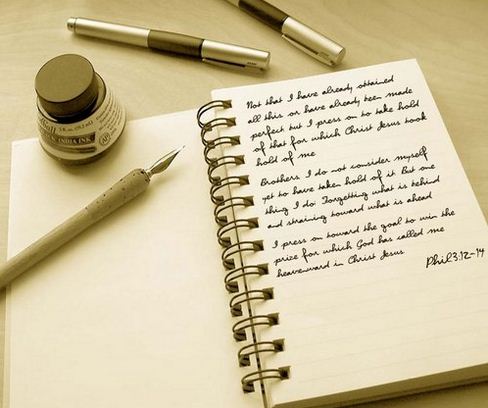 Not that I have already attained
all this or have already been made
perfect but I press on to take hold
of that for which Christ Jesus took
hold of me
Brothers I do not consider myself
yet to have taken hold of it But one
thing I do: Forgetting what is behind
and straining toward what is ahead
I press on toward the goal to win the
prize for which God has called me
heavenward in Christ Jesus
Phil.3:12-14
INDIA INK